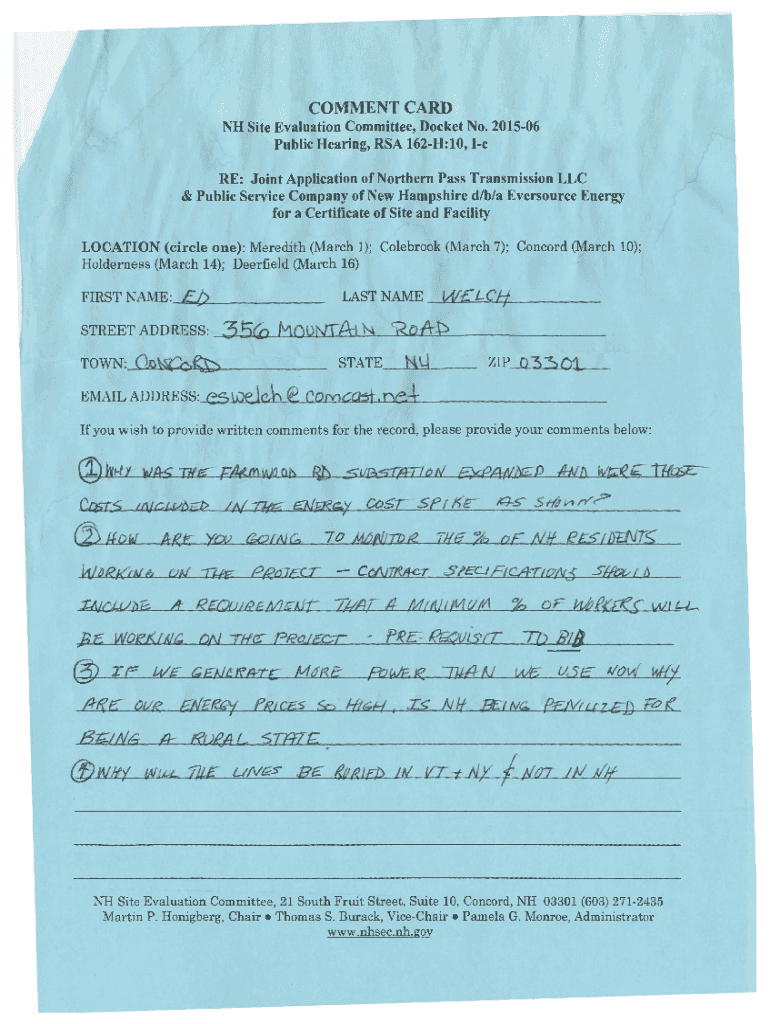 COMMENT CARD
NH Site Evaluation Committee, Docket No. 2015-06
Public Hearing, RSA 162-H:10, I-c
RE: Joint Application of Northern Pass Transmission LLC
& Public Service Company of New Hampshire d/b/a Eversource Energy
for a Certificate of Site and Facility
LOCATION (circle one): Meredith (March 1); Colebrook (March 7); Concord (March 10);
Holderness (March 14); Deerfield (March 16)
FIRST NAME: ED LAST NAME WELCH
STREET ADDRESS: 356 MOUNTAIN ROAD
TOWN: CONCORD STATE NH ZIP 03301
EMAIL ADDRESS: eswelch@comcast.net
If you wish to provide written comments for the record, please provide your comments below:
① WHY WAS THE FARMWOOD RD SUBSTATION EXPANDED AND WERE THOSE
COSTS INCLUDED IN THE ENERGY COST SPIKE AS SHOWN?
② HOW ARE YOU GOING TO MONITOR THE % OF NH RESIDENTS
WORKING ON THE PROJECT – CONTRACT SPECIFICATIONS SHOULD
INCLUDE A REQUIREMENT THAT A MINIMUM % OF WORKERS WILL
BE WORKING ON THE PROJECT - PRE-REQUISIT TO BID
③ IF WE GENERATE MORE POWER THAN WE USE NOW WHY
ARE OUR ENERGY PRICES SO HIGH. IS NH BEING PENILIZED FOR
BEING A RURAL STATE.
④ WHY WILL THE LINES BE BURIED IN VT + NY & NOT IN NH
NH Site Evaluation Committee, 21 South Fruit Street, Suite 10, Concord, NH 03301 (603) 271-2435
Martin P. Honigberg, Chair • Thomas S. Burack, Vice-Chair • Pamela G. Monroe, Administrator
www.nhsec.nh.gov